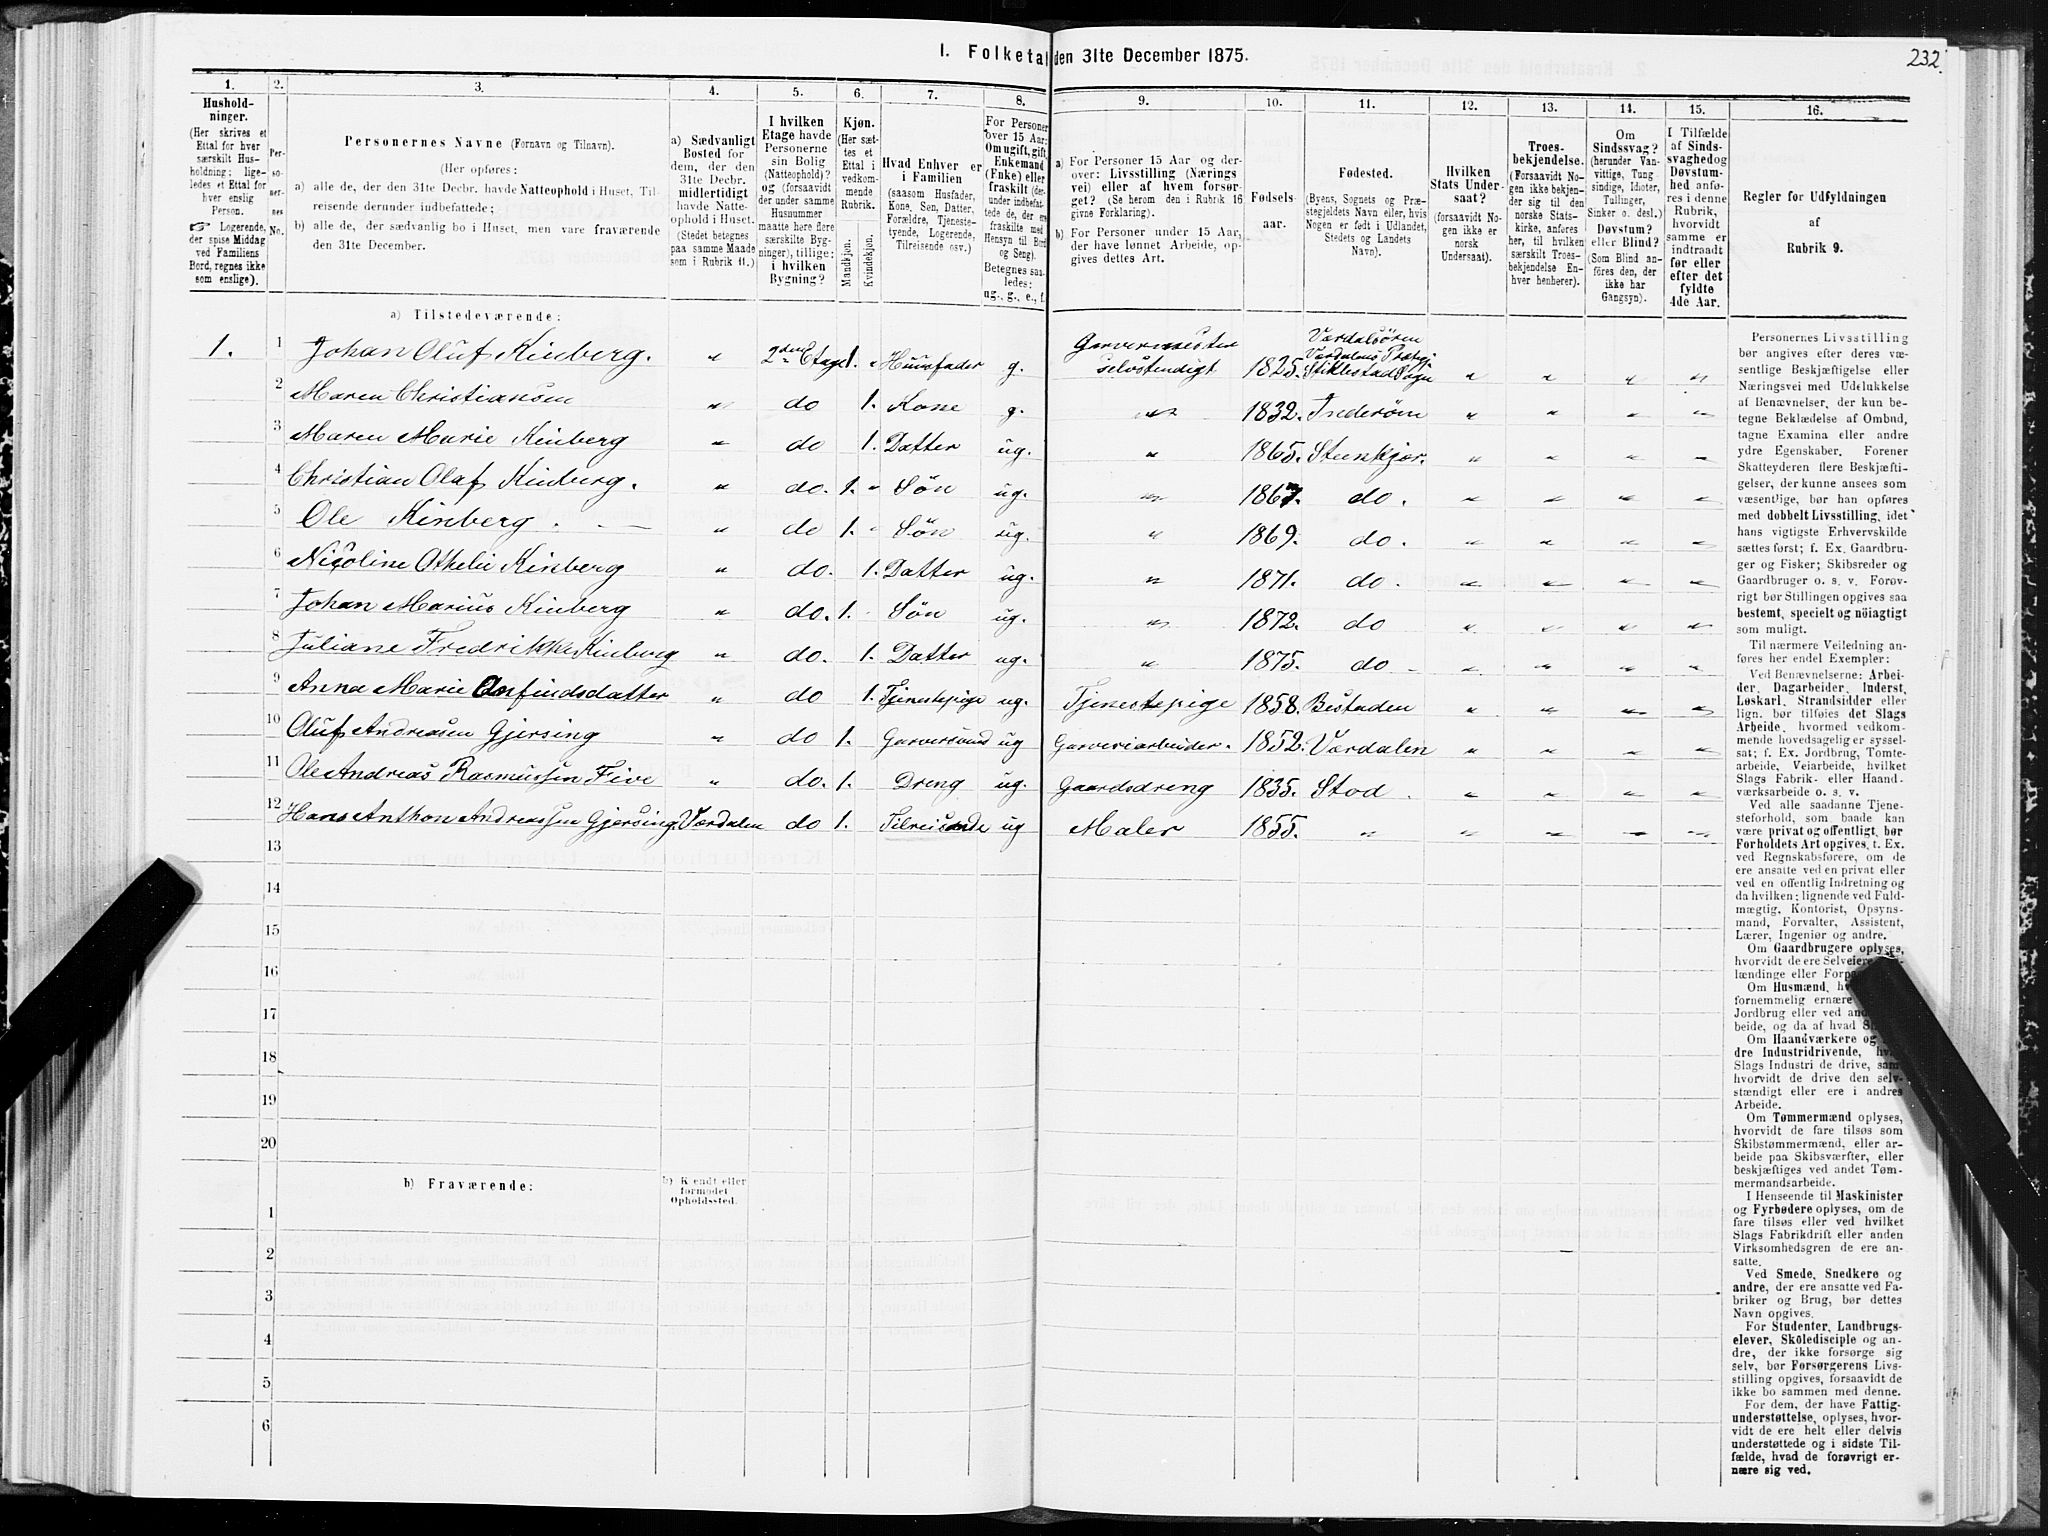 232.
I. Folketal den 31te December 1875.
1. 2. 3. 4. 5. 6. 7. 8. 9. 10. 11. 12. 13. 14. 15. 16.
Husholdninger.
(Her skrives et
Ettal for hver
særskilt Hus-
holdning; lige-
ledes et Ettal for
hver enslig
Person.
☞ Logerende,
der spise Middag
ved Familiens
Bord, regnes ikke
som enslige).
Per-
so-
ner-
nes
No.
Personernes Navne (Fornavn og Tilnavn).
(Her opføres:
a) alle de, der den 31te Decbr. havde Natteophold i Huset, Til-
reisende derunder indbefattede;
b) alle de, der sædvanlig bo i Huset, men vare fraværende
den 31te December.
a) Sædvanligt
Bosted for
dem, der den
31te Decbr.
midlertidigt
havde Natte-
ophold i Huset.
(Stedet betegnes
paa samme Maade
som i Rubrik 11.)
I hvilken
Etage havde
Personerne
sin Bolig
(Natteophold)?
og (forsaavidt
der under samme
Husnummer
maatte høre flere
særskilte Byg-
ninger), tillige:
i hvilken
Bygning?
Kjøn.
(Her sæt-
tes et
Ettal i
vedkom-
mende
Rubrik.
Mandkjøn.
Kvindekjøn.
Hvad Enhver er
i Familien
(saasom Husfader,
Kone, Søn, Datter,
Forældre, Tjeneste-
tyende, Logerende,
Tilreisende osv.)
For Personer
over 15 Aar:
Om ugift, gift,
Enkemand
(Enke) eller
fraskilt (der-
under indbefat-
tede de, der ere
fraskilte med
Hensyn til Bord
og Seng).
Betegnes saa-
ledes:
ug., g., e., f.
a) For Personer 15 Aar og der-
over: Livsstilling (Nærings
vei) eller af hvem forsør-
get? (Se herom den i Rubrik 16
givne Forklaring).
b) For Personer under 15 Aar,
der have lønnet Arbeide, op-
gives dettes Art.
Fødsels-
aar.
Fødested.
(Byens, Sognets og Præ-
stegjeldets Navn eller, hvis
Nogen er født i Udlandet,
Stedets og Landets
Navn).
Hvilken
Stats Under-
saat?
(forsaavidt No-
gen ikke er
norsk
Undersaat).
Troes-
bekjendelse.
(Forsaavidt No-
gen ikke bekjen-
der sig til den
norske Stats-
kirke, anføres
her, til hvilken
særskilt Troes-
bekjendelse En-
hver henhører).
Om
Sindssvag?
(herunder Van-
vittige, Tung-
sindige, Idioter,
Tullinger,
Sinker o. desl.)
Døvstum?
eller Blind?
(Som Blind an-
føres den, der
ikke har
Gangsyn).
I Tilfælde
af Sinds-
svaghed og
Døvstum-
hed anfø-
res i denne
Rubrik,
hvorvidt
samme er
indtraadt
før eller
efter det
fyldte
4de Aar.
Regler for Udfyldningen
af
Rubrik 9.
a) Tilstedeværende:
1. 1 Johan Oluf Kinberg. „ 2den Etage 1. „ Huusfader g. Garvermester selvstendigt 1825. Værdalsören Værdalens Præstegj. Stiklestad Sogn „ „ „ „
2 Maren Christiansen „ do 1. Kone g. „ 1832. Inderøen „ „ „ „
3 Maren Marie Kinberg „ do 1. Datter ug. „ 1865. Steenkjær. „ „ „ „
4 Christian Olaf Kinberg. „ do. 1. „ Søn ug. „ 1867. do. „ „ „ „
5 Ole Kinberg. „ do 1. „ Søn ug. „ 1869. do. „ „ „ „
6 Nicoline Othelie Kinberg „ do. 1. Datter ug. „ 1871. do. „ „ „ „
7 Johan Marius Kinberg „ do. 1. Søn ug. „ 1872. do „ „ „ „
8 Juliane Fredrikke Kinberg „ do. 1. Datter ug. „ 1875. do „ „ „ „
9 Anna Marie Anfindsdatter „ do 1. Tjenestepige ug. Tjenestepige 1858. Bestaden „ „ „ „
10 Oluf Andreasen Gjersing „ do 1. Garversvend ug Garveriarbeider. 1852. Værdalen „ „ „ „
11 Ole Andreas Rasmussen Five „ do. 1. Dreng ug. Gaardsdreng 1835. Stod „ „ „ „
12 Hans Anthon Andreassen Gjersing Værdalen do 1. Tilreisende ug Maler 1855. „ „ „ „ „
13
14
15
16
17
18
19
20
b) Fraværende:
b) Kjendt eller
formodet
Opholdssted.
1
2
3
4
5
6
Personernes Livsstilling
bør angives efter deres væ-
sentlige Beskjæftigelse eller
Næringsvei med Udelukkelse
af Benævnelser, der kun be-
tegne Beklædelse af Ombud,
tagne Examina eller andre
ydre Egenskaber. Forener
Skatteyderen flere Beskjæfti-
gelser, der kunne ansees som
væsentlige, bør han opføres
med dobbelt Livsstilling, idet
hans vigtigste Erhvervskilde
sættes først; f. Ex. Gaardbru-
ger og Fisker; Skibsreder og
Gaardbruger o. s. v. Forøv-
rigt bør Stillingen opgives saa
bestemt, specielt og nöiagtigt
som muligt.
Til nærmere Veiledning an-
føres her endel Exempler:
Ved Benævnelserne: Arbei-
der, Dagarbeider, Inderst,
Løskarl, Strandsidder eller
lign. bør tilføies det Slags
Arbeide, hvormed vedkom-
mende hovedsagelig er syssel-
sat; f. Ex. Jordbrug, Tomte-
arbeide, Veiarbeide, hvilket
Slags Fabrik- eller Haand-
værksarbeide o. s. v.
Ved alle saadanne Tjene-
steforhold, som baade kan
være privat og offentligt, bør
Forholdets Art opgives, f. Ex.
ved Regnskabsførere, om de
ere ansatte ved en privat eller
ved en offentlig Indretning og
da hvilken; lignende ved Fuld-
mægtig, Kontorist, Opsyns-
mand, Forvalter, Assistent,
Lærer, Ingeniør og andre.
Om Gaardbrugere oplyses,
hvorvidt de ere Selveiere,
lændinge eller
Om Husmænd,
fornemmelig ernære
Jordbrug eller ved
beide, og da af hvad
Om Haandværkere og
dre Industridrivende,
Slags Industri de drive, samt
hvorvidt de drive den selv-
stændigt eller ere i andres
Arbeide.
Om Tømmermænd oplyses,
hvorvidt de fare tilsøs som
Skibstømmermænd, eller ar-
beide paa Skibsværfter, eller
beskjæftiges ved andet Tøm-
mermandsarbeide.
I Henseende til Maskinister
og Fyrbødere oplyses, om de
fare tilsøs eller ved hvilket
Slags Fabrikdrift eller anden
Virksomhedsgren de ere an-
satte.
Ved Smede, Snedkere og
andre, der ere ansatte ved Fa-
briker og Brug, bør dettes
Navn opgives.
For Studenter, Landbrugs-
elever, Skoledisciple og an-
dre, der ikke forsørge sig
selv, bør Forsørgerens Livs-
stilling opgives, forsaavidt de
ikke bo sammen med denne.
For dem, der have Fattig-
understøttelse, oplyses, hvor-
vidt de ere helt eller delvis
understøttede og i sidste Til-
fælde, hvad de forøvrigt er-
nære sig ved.